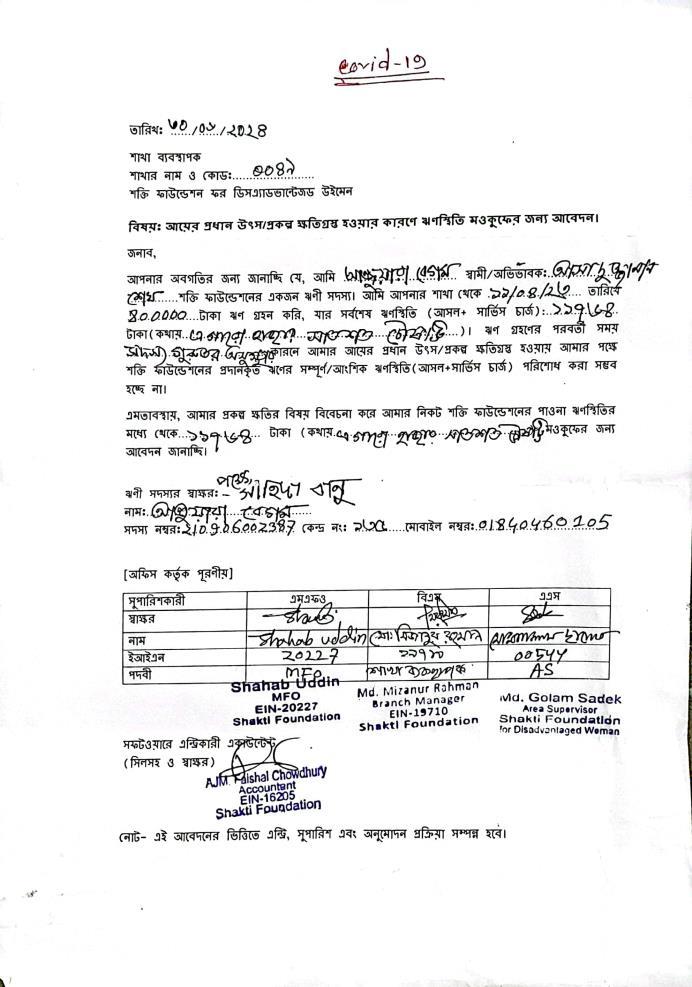 covid-19
তারিখ: ৩০/০৬/২০২৪
শাখা ব্যবস্থাপক
শাখার নাম ও কোড:
শক্তি ফাউন্ডেশন ফর ডিসএ্যাডভান্টেজড উইমেন
বিষয়: আয়ের প্রধান উৎস/প্রকল্প ক্ষতিগ্রস্ত হওয়ার কারণে ঋণস্থিতি মওকুফের জন্য আবেদন।
জনাব,
আপনার অবগতির জন্য জানাচ্ছি যে, আমি বেগম স্বামী/অভিভাবক:
শেখ শক্তি ফাউন্ডেশনের একজন ঋণী সদস্য। আমি আপনার শাখা থেকে তারিখে
টাকা ঋণ গ্রহন করি, যার সর্বশেষ ঋণস্থিতি (আসল+ সার্ভিস চার্জ): ১১৭৬৪
টাকা(কথায় এগারো হাজার সাতশত চৌষট্টি)। ঋণ গ্রহণের পরবর্তী সময়
সদস্য গুরুতর কারনে আমার আয়ের প্রধান উৎস/প্রকল্প ক্ষতিগ্রস্ত হওয়ায় আমার পক্ষে
শক্তি ফাউন্ডেশনের প্রদানকৃত ঋণের সম্পূর্ণ/আংশিক ঋণস্থিতি(আসল+সার্ভিস চার্জ) পরিশোধ করা সম্ভব
হচ্ছে না।
এমতাবস্থায়, আমার প্রকল্প ক্ষতির বিষয় বিবেচনা করে আমার নিকট শক্তি ফাউন্ডেশনের পাওনা ঋণস্থিতির
মধ্যে থেকে ১১৭৬৪ টাকা (কথায় এগারো হাজার সাতশত চৌষট্টি মওকুফের জন্য
আবেদন জানাচ্ছি।
পক্ষে,
ঋণী সদস্যর স্বাক্ষর:- সাহিদা বানু
নাম: বেগম
সদস্য নম্বর: 210906002387 কেন্দ্র নং: মোবাইল নম্বর: 01840460105
[অফিস কর্তৃক পূরণীয়]
সুপারিশকারী এমএফও বিএম এএস
স্বাক্ষর
নাম Shahab uddin মো: মিজানুর রহমান
ইআইএন 20227 ১৯৭১০ 00544
পদবী MFO শাখা ব্যবস্থাপক AS
Shahab Uddin
MFO
EIN-20227
Shakti Foundation
Md. Mizanur Rahman
Branch Manager
EIN-19710
Shakti Foundation
Md. Golam Sadek
Area Supervisor
Shakti Foundation
for Disadvantaged Woman
সফটওয়ারে এন্ট্রিকারী একাউন্টেন্ট
(সিলসহ ও স্বাক্ষর)
AJM. Faishal Chowdhury
Accountant
EIN-16205
Shakti Foundation
নোট- এই আবেদনের ভিত্তিতে এন্ট্রি, সুপারিশ এবং অনুমোদন প্রক্রিয়া সম্পন্ন হবে।